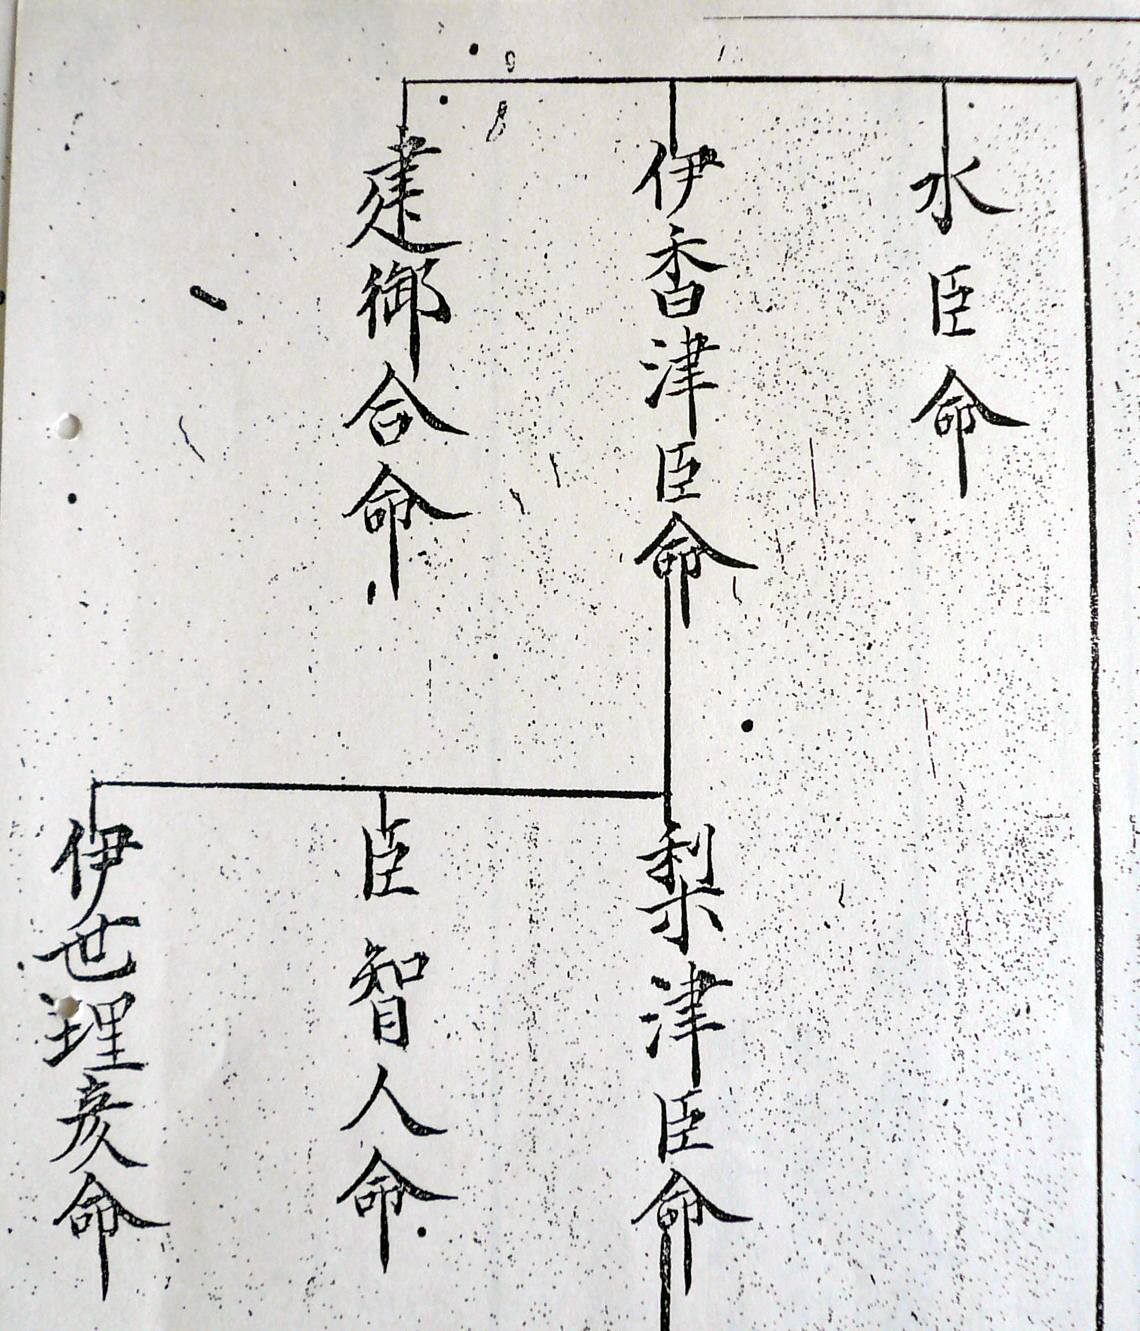 水臣命
伊香津臣命
建御合命
梨津臣命
臣智人命
伊世理彦命